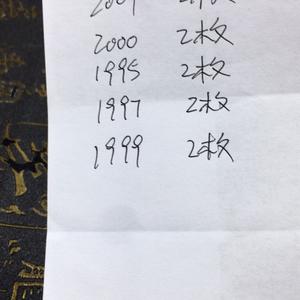 2000 2枚
1995 2枚
1997 2枚
1999 2枚